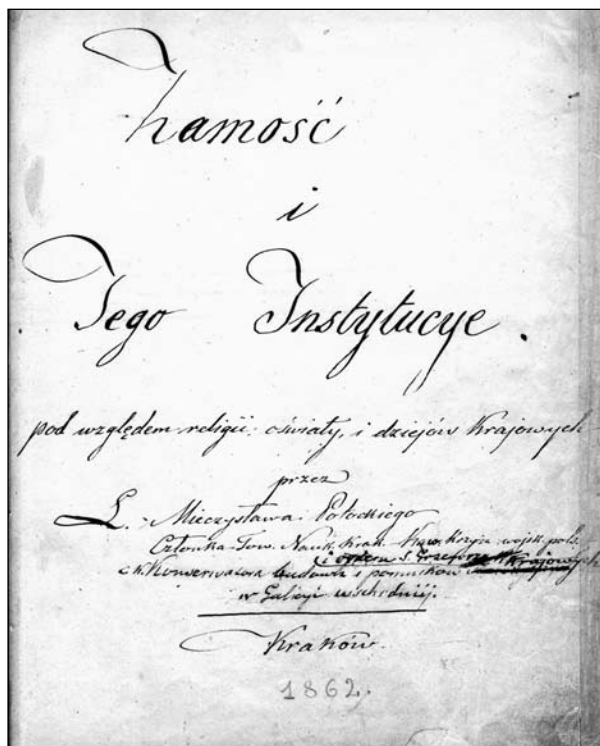 Zamość
i
Jego Instytucye.
pod względem religii, oświaty, i dziejów Krajowych
przez
L. Mieczysława Potockiego
Członka Tow. Nauk. Krak. Kaw. Krzyża wojsk. pols.
i orderu S. Grzegorza
c. k. Konserwatora budowli i pomników Krajowych
w Galicyi wschodniéj.
Kraków.
1862.